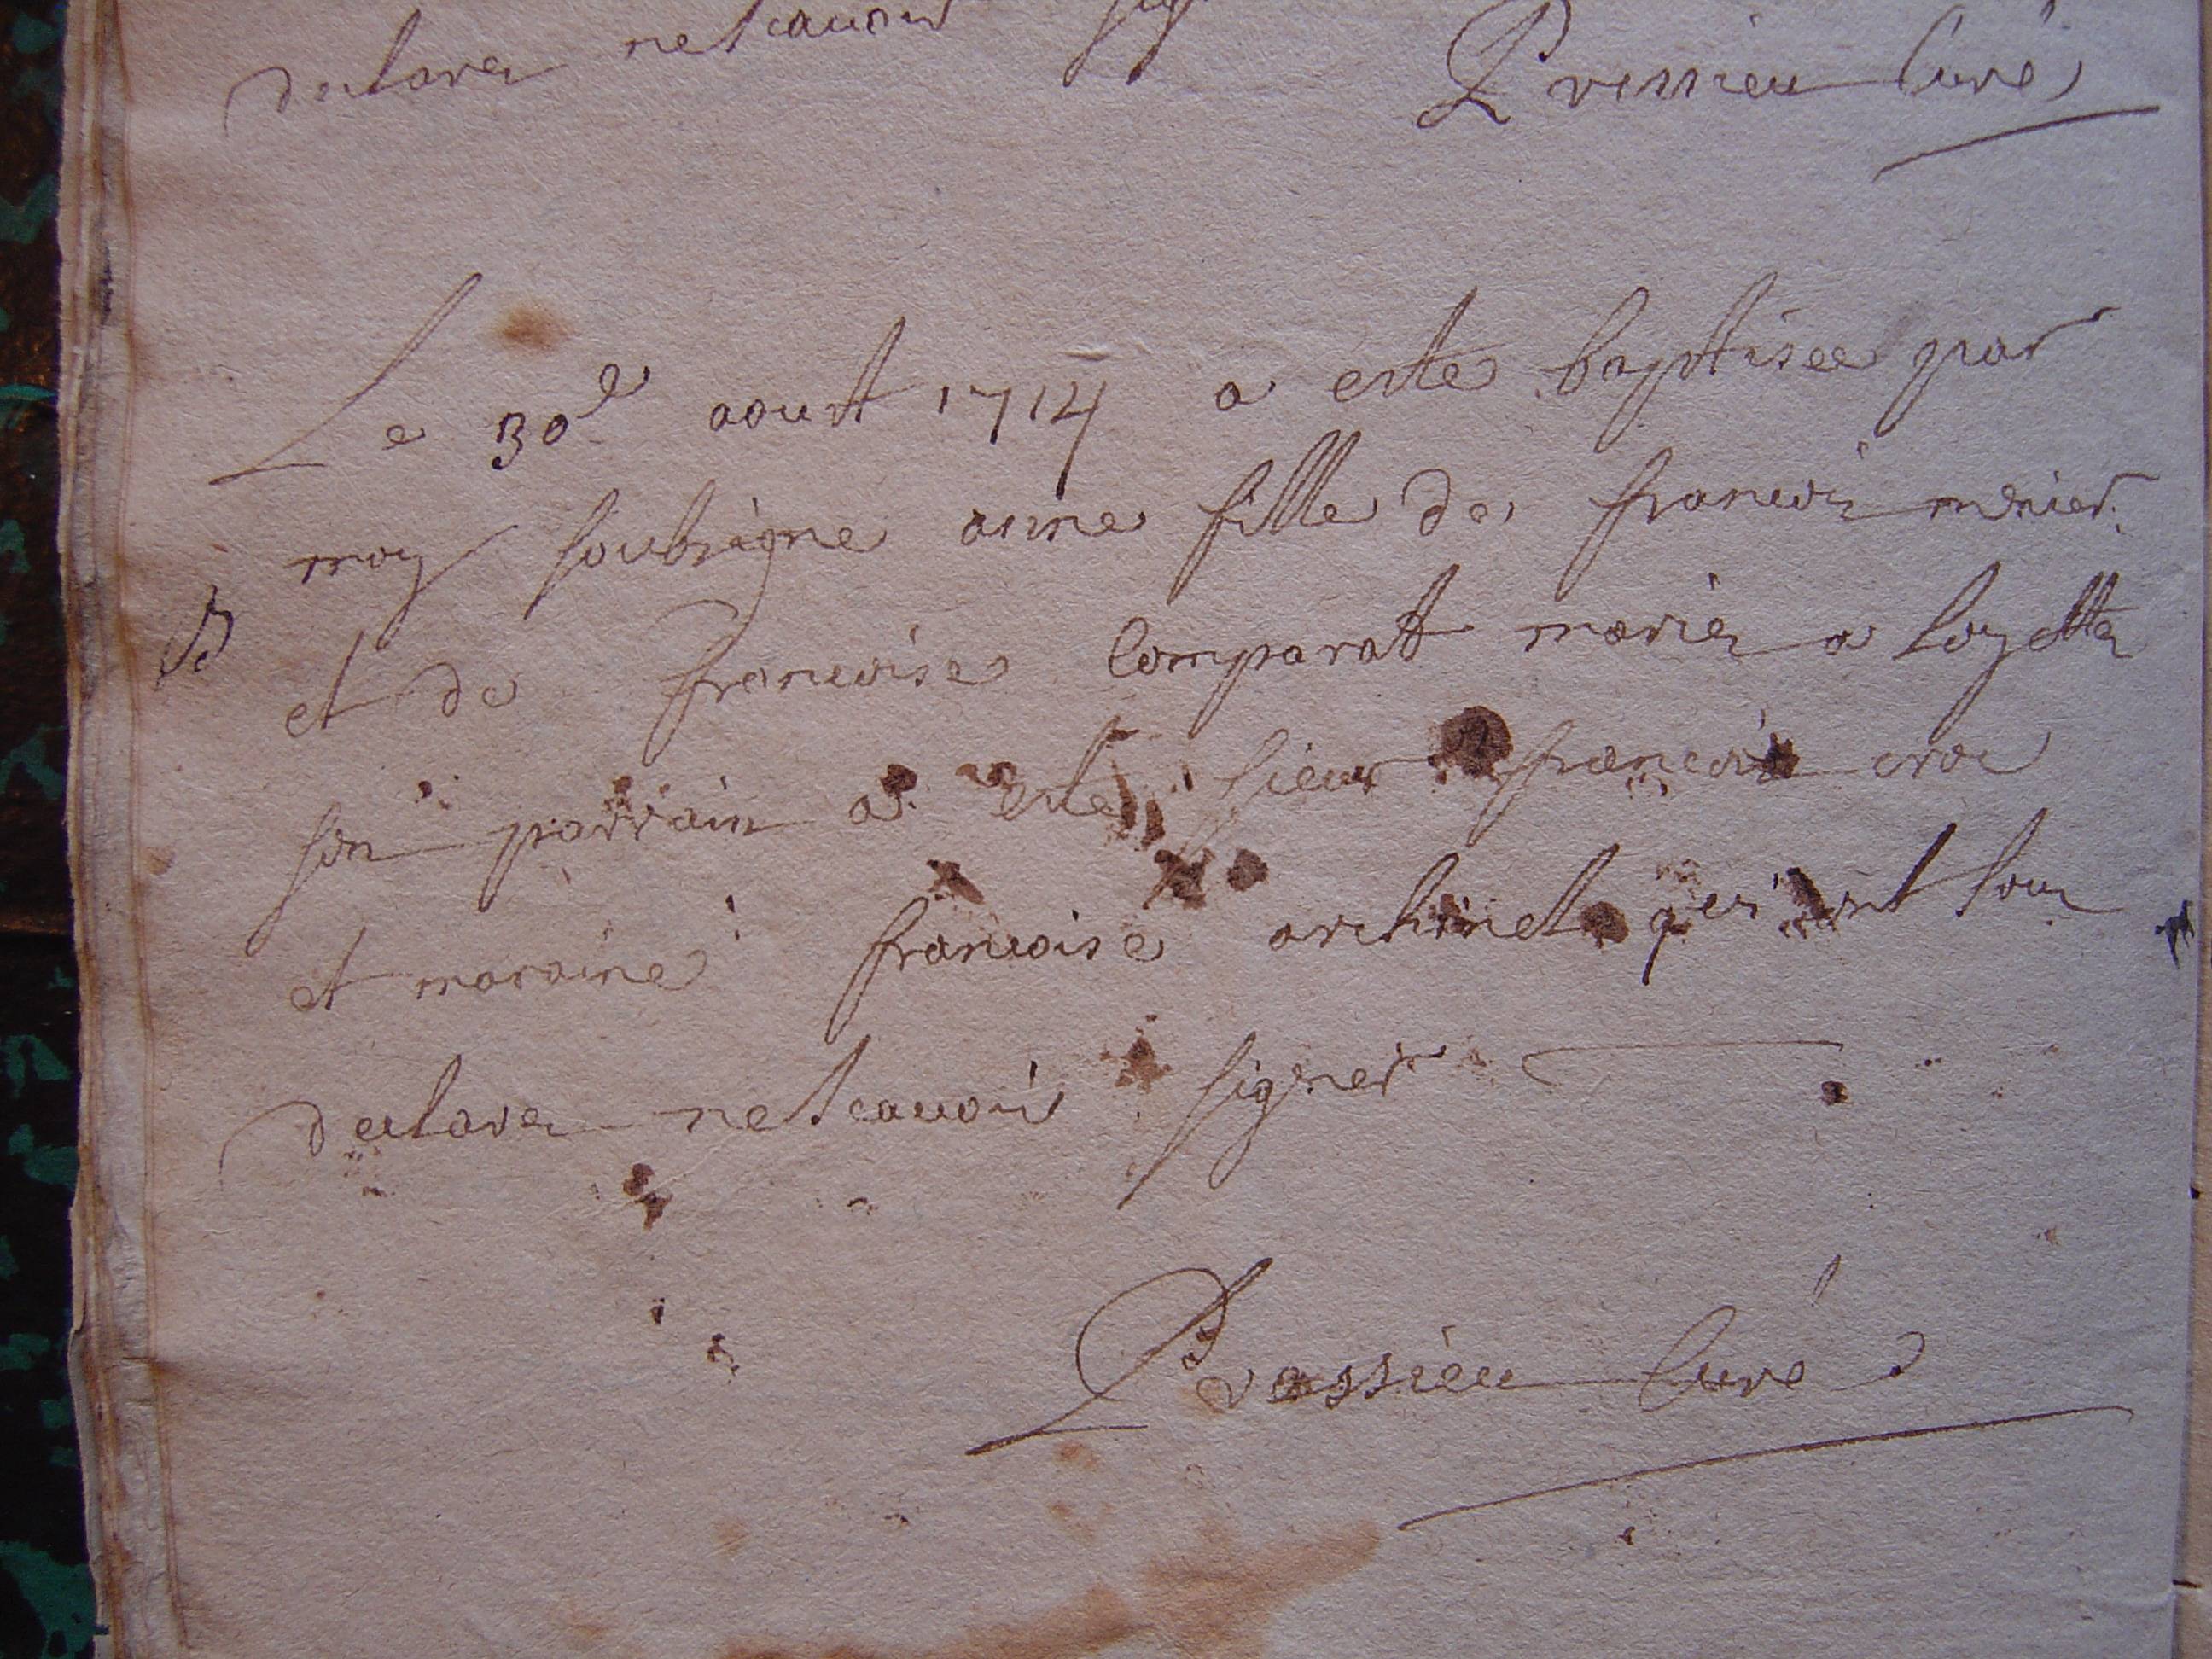 declarez ne scauoir
Pressieu Curé
Le 30e aoust 1714 a este baptisee par
moy soubsigne anne fille de francois menier
B
et de francoise Comparatt mariez a loyettes
son parrain a este sieur francois croc
et maraine francoise archinet qui ont tous
declarez ne scauoir signer
Pressieu Curé